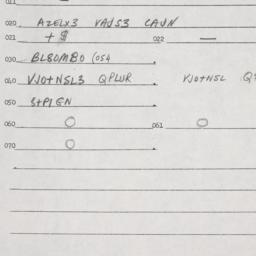 020 AZELX3 VAJS3 CAJN
021 + $ 022 —
030 BL8OMBO (054
040 VJO+NSL3 QPLWR VJO+NSL Q
050 S+PIGN
060 O 061 O
070 O